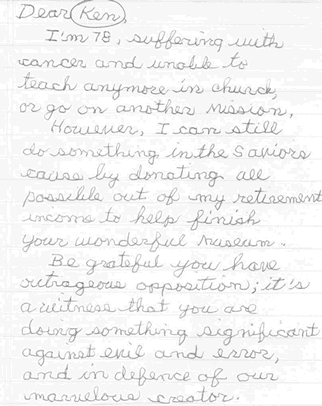 Dear Ken,
I'm 78, suffering with
cancer and unable to
teach anymore in church,
or go on another mission,
However, I can still
do something in the Saviors
cause by donating all
possible out of my retirement
income to help finish
your wonderful museum.
Be grateful you have
outrageous opposition; it's
a witness that you are
doing something significant
against evil and error,
and in defence of our
marvelous creator.